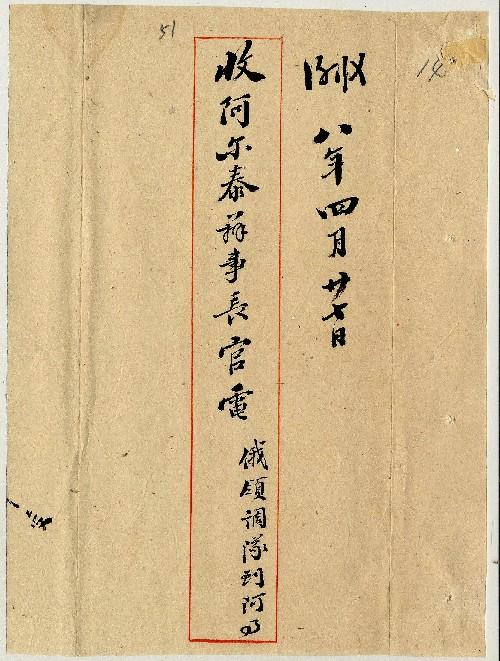 八年四月廿七日
收阿尔泰辦事長官電
俄領調隊到阿
51